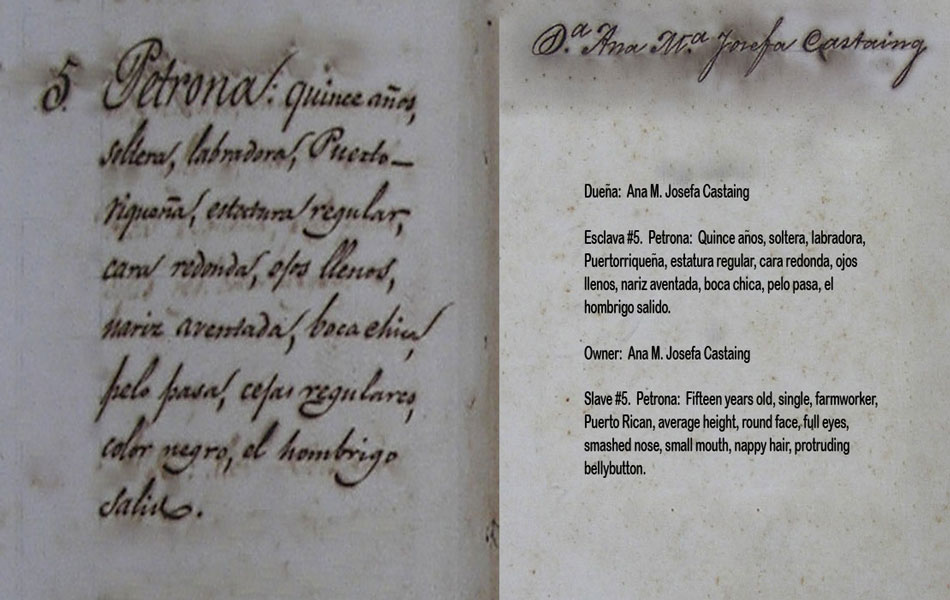 5. Petrona: quince años,
soltera, labradora, Puerto-
riqueña, estatura regular,
cara redonda, ojos llenos,
nariz aventada, boca chica,
pelo pasa, cejas regulares,
color negro, el hombrigo
salido.
D.ª Ana M.ª Josefa Castaing
Dueña: Ana M. Josefa Castaing
Esclava #5. Petrona: Quince años, soltera, labradora,
Puertorriqueña, estatura regular, cara redonda, ojos
llenos, nariz aventada, boca chica, pelo pasa, el
hombrigo salido.
Owner: Ana M. Josefa Castaing
Slave #5. Petrona: Fifteen years old, single, farmworker,
Puerto Rican, average height, round face, full eyes,
smashed nose, small mouth, nappy hair, protruding
bellybutton.